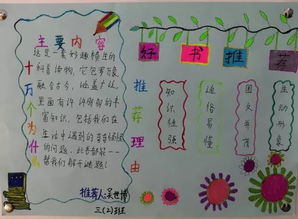 好书推荐
主要内容
十万个为什么
这是一套妙趣横生的
科普读物，它包罗万象
融合古今，涵盖广泛。
里面有许许多多的丰
富知识，包括我们在
生活中遇到的
的问题，
帮我们解开谜题！
推荐人：吴世博
三（2）班
推荐理由
知识性强
通俗易懂
图文并茂
生动形象